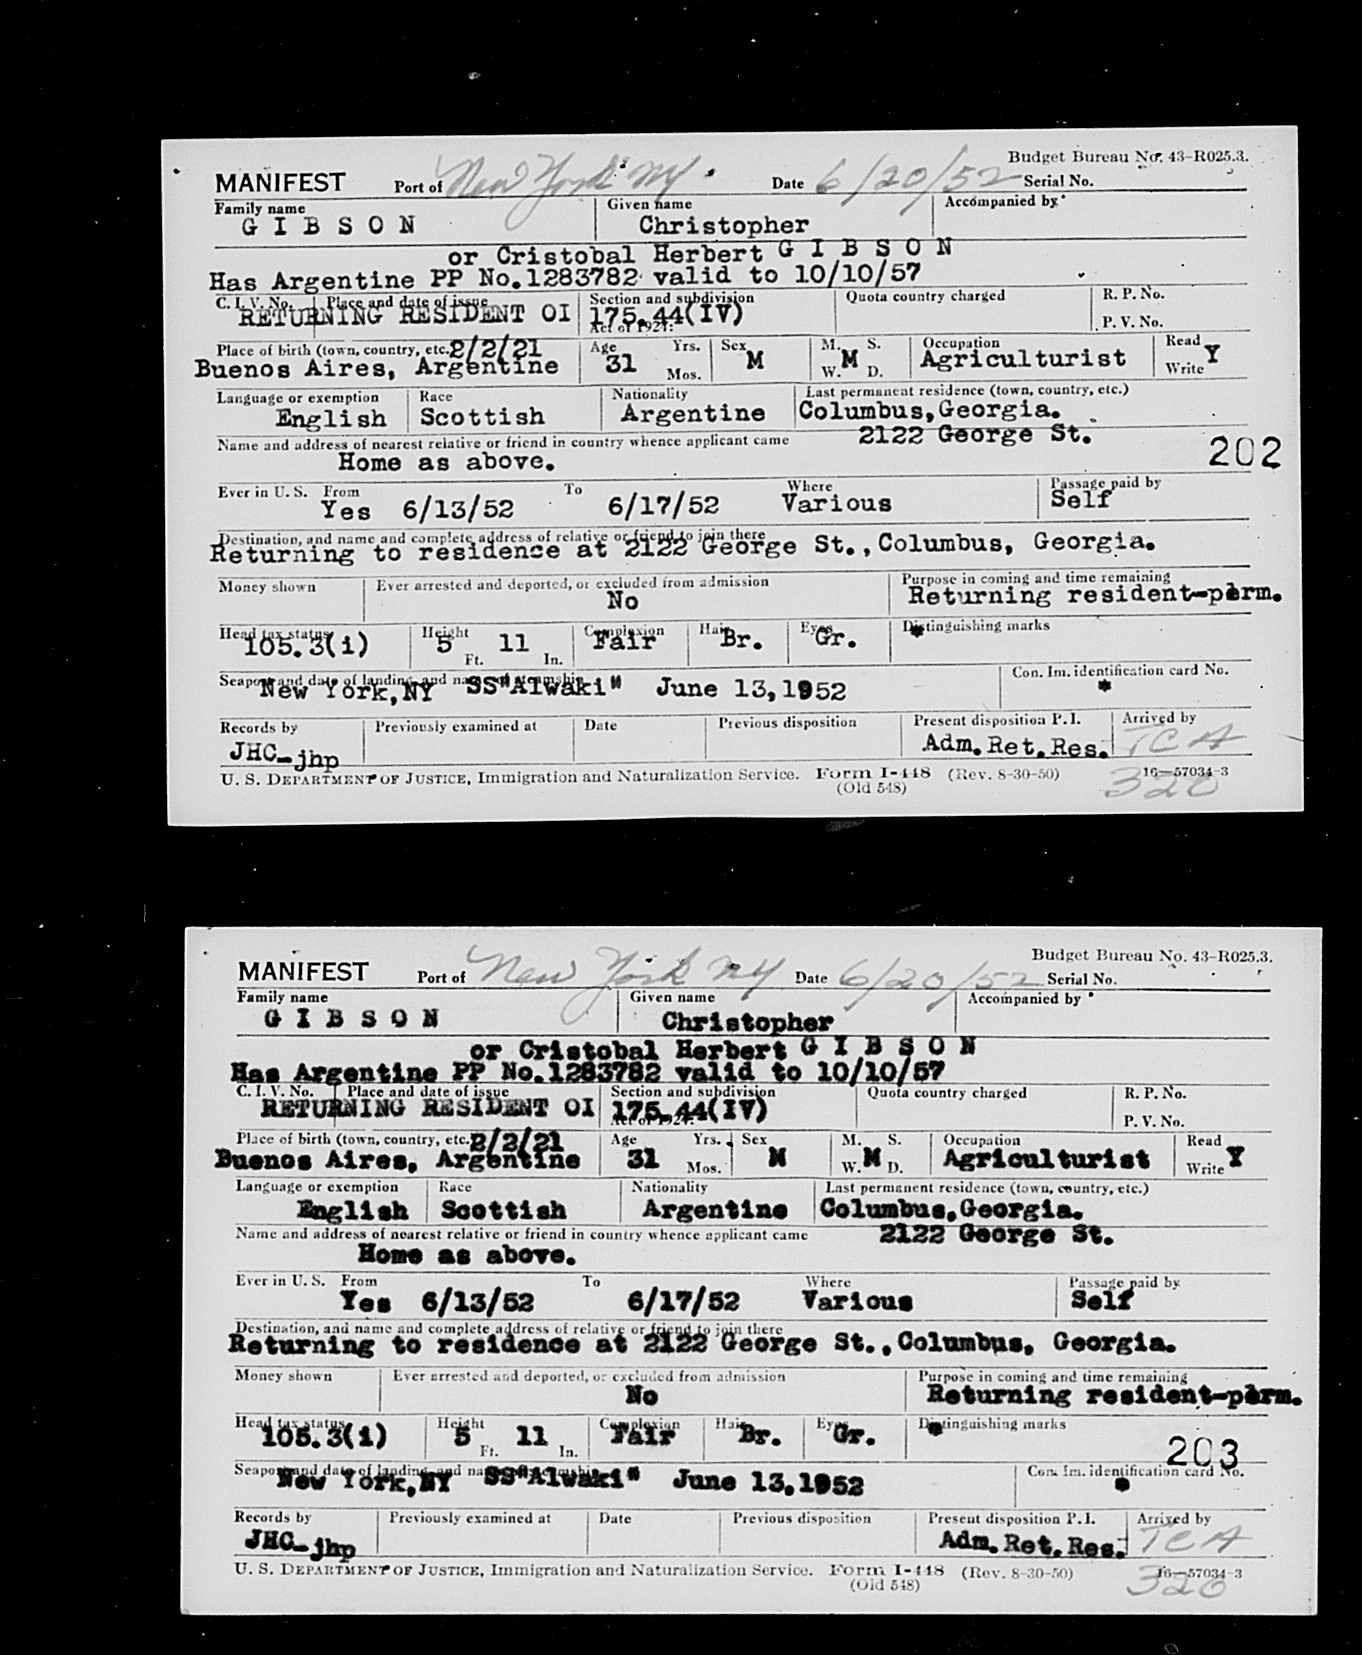 Budget Bureau No. 43-R025.3.
MANIFEST Port of New York NY. Date 6/20/52 Serial No.
Family name Given name Accompanied by
G I B S O N Christopher
or Cristobal Herbert G I B S O N
Has Argentine PP No.1283782 valid to 10/10/57
C. I. V. No. Place and date of issue Section and subdivision Quota country charged R. P. No.
RETURNING RESIDENT OI 175.44(IV)
Act of 1924: P. V. No.
Place of birth (town, country, etc. 2/2/21 Age Yrs. Sex M. S. Occupation Read
Buenos Aires, Argentine 31 Mos. M W. M D. Agriculturist Write Y
Language or exemption Race Nationality Last permanent residence (town, country, etc.)
English Scottish Argentine Columbus,Georgia.
Name and address of nearest relative or friend in country whence applicant came 2122 George St.
Home as above. 202
Ever in U. S. From To Where Passage paid by
Yes 6/13/52 6/17/52 Various Self
Destination, and name and complete address of relative or friend to join there
Returning to residence at 2122 George St.,Columbus, Georgia.
Money shown Ever arrested and deported, or excluded from admission Purpose in coming and time remaining
No Returning resident-perm.
Head tax status Height Complexion Hair Eyes Distinguishing marks
105.3(i) 5 Ft. 11 In. Fair Br. Gr.
Seaport and date of landing, and name of steamship Con. Im. identification card No.
New York,NY SS"Alwaki" June 13,1952 *
Records by Previously examined at Date Previous disposition Present disposition P. I. Arrived by
JHC-jhp Adm.Ret.Res. TCA
U. S. DEPARTMENT OF JUSTICE, Immigration and Naturalization Service. Form I-448 (Rev. 8-30-50) 16—57034-3
(Old 548) 320
Budget Bureau No. 43-R025.3.
MANIFEST Port of New York NY Date 6/20/52 Serial No.
Family name Given name Accompanied by
G I B S O N Christopher
or Cristobal Herbert G I B S O N
Has Argentine PP No.1283782 valid to 10/10/57
C. I. V. No. Place and date of issue Section and subdivision Quota country charged R. P. No.
RETURNING RESIDENT OI 175.44(IV)
Act of 1924: P. V. No.
Place of birth (town, country, etc. 2/2/21 Age Yrs. Sex M. S. Occupation Read
Buenos Aires, Argentine 31 Mos. M W. M D. Agriculturist Write Y
Language or exemption Race Nationality Last permanent residence (town, country, etc.)
English Scottish Argentine Columbus,Georgia.
Name and address of nearest relative or friend in country whence applicant came 2122 George St.
Home as above.
Ever in U. S. From To Where Passage paid by
Yes 6/13/52 6/17/52 Various Self
Destination, and name and complete address of relative or friend to join there
Returning to residence at 2122 George St.,Columbus, Georgia.
Money shown Ever arrested and deported, or excluded from admission Purpose in coming and time remaining
No Returning resident-perm.
Head tax status Height Complexion Hair Eyes Distinguishing marks
105.3(i) 5 Ft. 11 In. Fair Br. Gr. 203
Seaport and date of landing, and name of steamship Con. Im. identification card No.
New York,NY SS"Alwaki" June 13,1952 *
Records by Previously examined at Date Previous disposition Present disposition P. I. Arrived by
JHC-jhp Adm.Ret.Res. TCA
U. S. DEPARTMENT OF JUSTICE, Immigration and Naturalization Service. Form I-448 (Rev. 8-30-50) 16—57034-3
(Old 548) 320